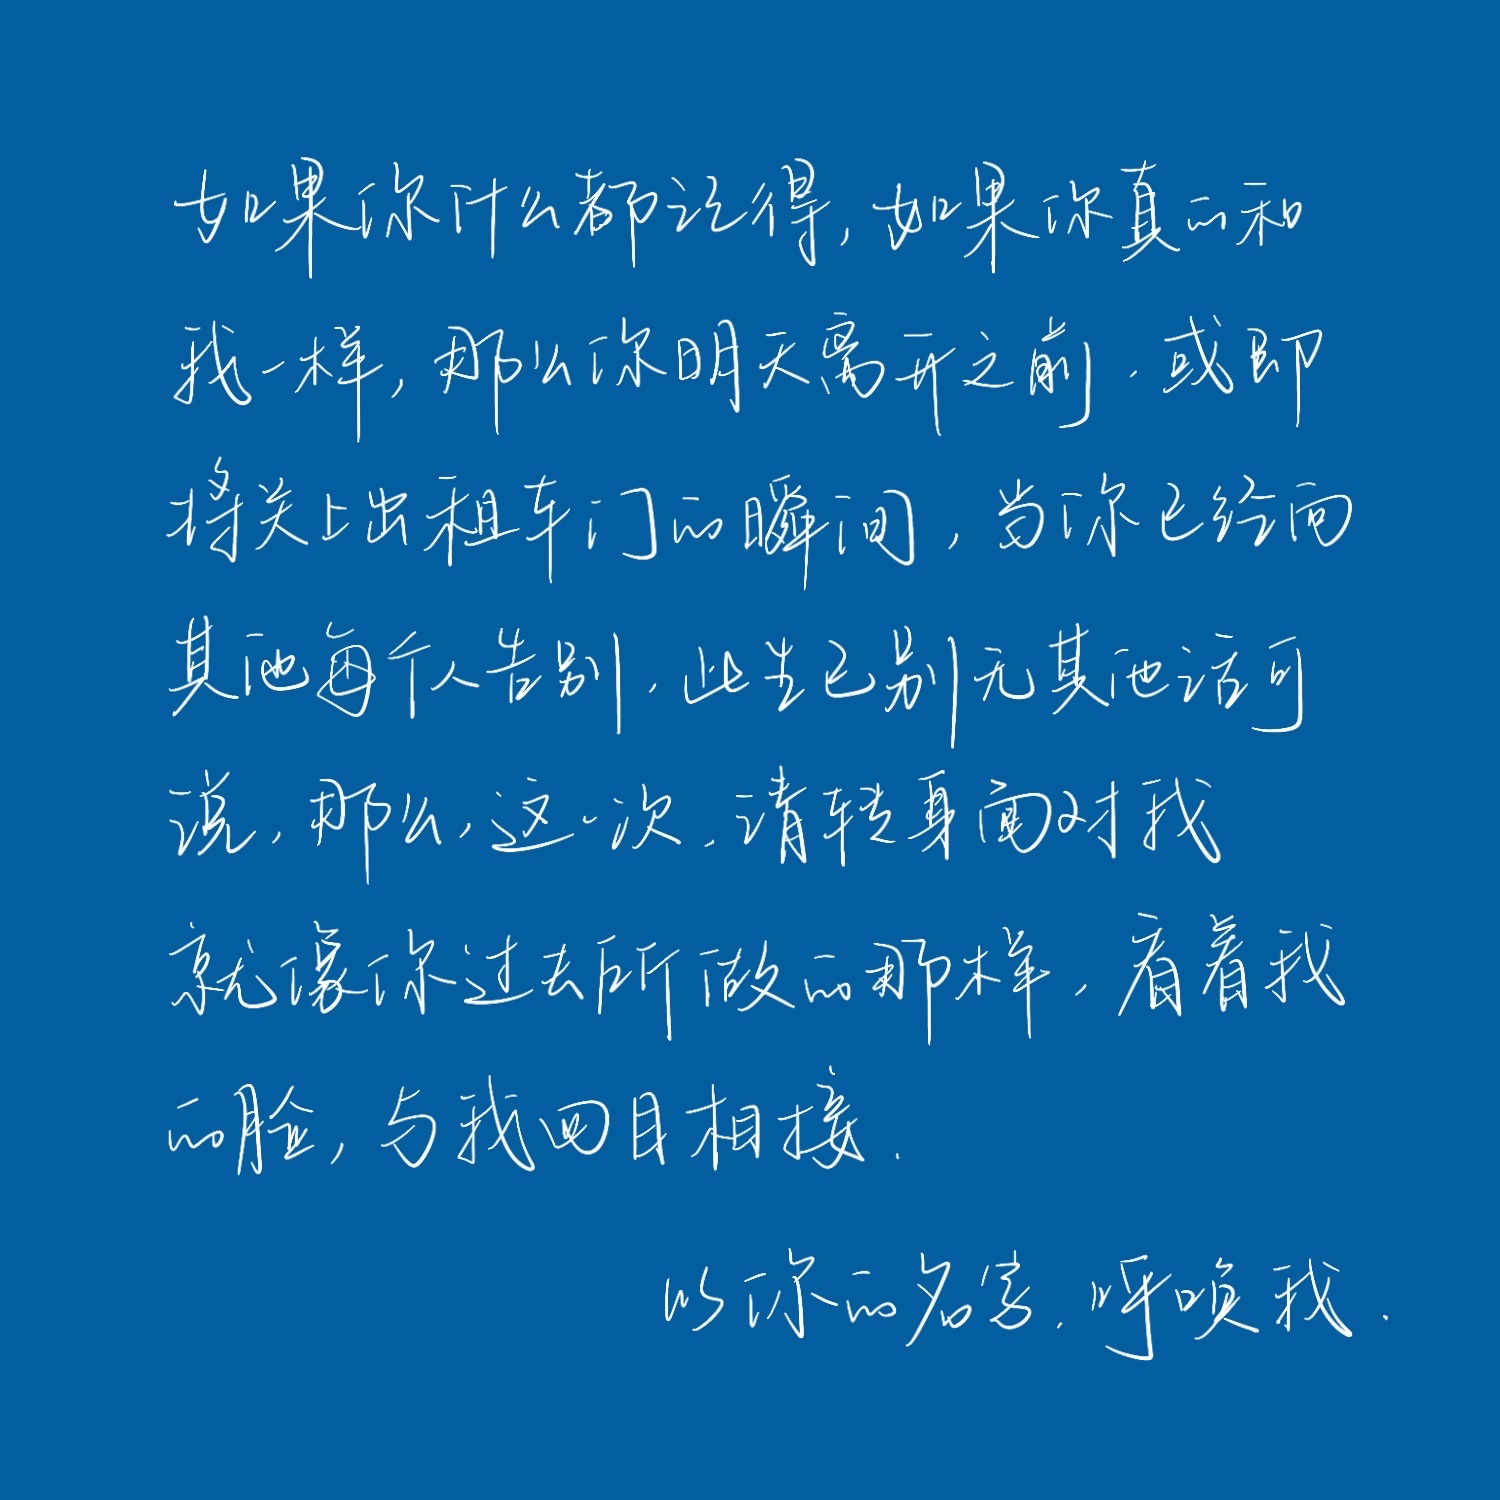 如果你什么都记得,如果你真的和
我一样,那么你明天离开之前.或即
将关上出租车门的瞬间,当你已经向
其他每个人告别,此生已别无其他话可
说,那么,这一次,请转身面对我
就像你过去所做的那样,看着我
的脸,与我四目相接.
以你的名字,呼唤我.